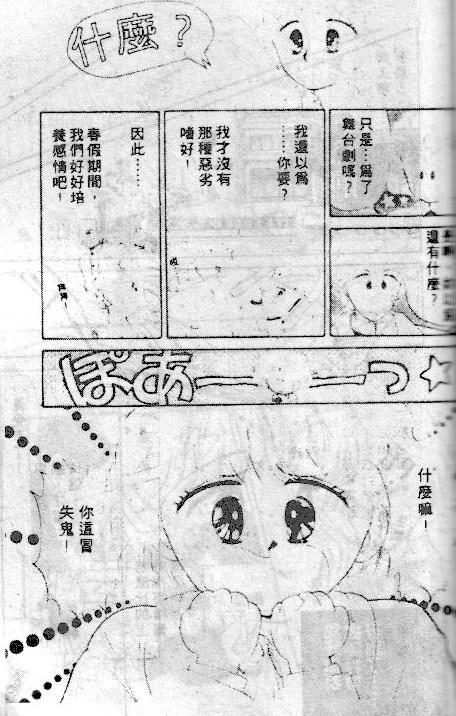 什麼？
只是…為了
舞台劇嗎？
還有什麼？
我還以為
……你要？
我才沒有
那種惡劣
嗜好！
哎
因此……
春假期間，
我們好好培
養感情吧！
ぽあーーっ☆
什麼嘛！
你這冒
失鬼！